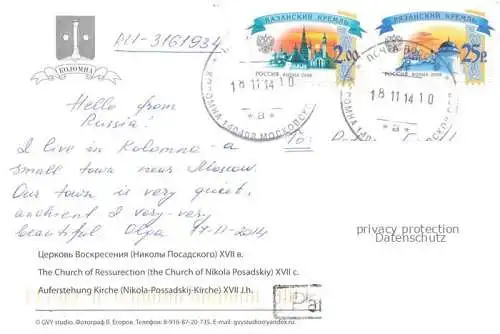 RU-3161934
КАЗАНСКИЙ КРЕМЛЬ
РЯЗАНСКИЙ КРЕМЛЬ
РОССИЯ ROSSIA 2009
РОССИЯ ROSSIA 2009
25р
КОЛОМНА
18 11 14 10
18 11 14 10
"а"
"а"
Hello from
Russia!
I live in Kolomna - a
small town near Moscow.
Our town is very quiet,
anchient I very-very
beautiful Olga 17-11-2014
To:
privacy protection
Datenschutz
Церковь Воскресения (Николы Посадского) XVII в.
The Church of Ressurection (the Church of Nikola Posadskiy) XVII c.
Auferstehung Kirche (Nikola-Possadskij-Kirche) XVII J.h.
© GVY studio. Фотограф В. Егоров. Телефон: 8-916-87-20-735. E-mail: gvystudio@yandex.ru
Par